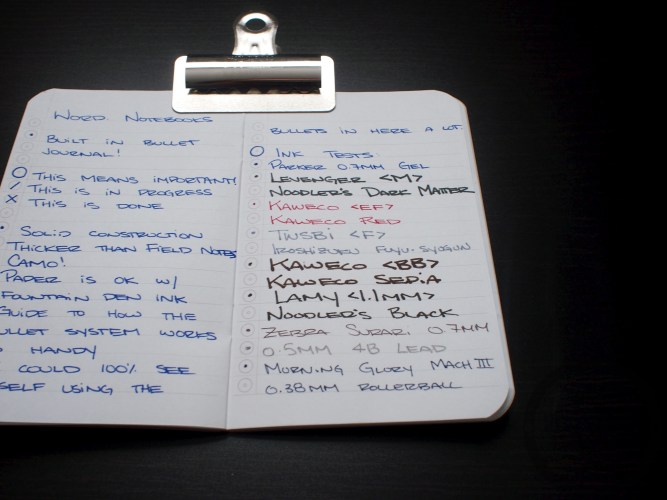 Word. Notebooks
Built in bullet
journal!
This means important!
This is in progress
This is done
Solid construction
Thicker than Field Notes
Camo!
Paper is ok w/
fountain pen ink
Guide to how the
bullet system works
handy
could 100% see
self using the
bullets in here a lot.
Ink Tests
Parker 0.7mm Gel
Levenger <M>
Noodler's Dark Matter
Kaweco <EF>
Kaweco Red
TWSBI <F>
Iroshizuku Fuyu-Syogun
Kaweco <BB>
Kaweco Sepia
Lamy <1.1mm>
Noodler's Black
Zebra Surari 0.7mm
0.5mm 4B Lead
Morning Glory Mach III
0.38mm Rollerball